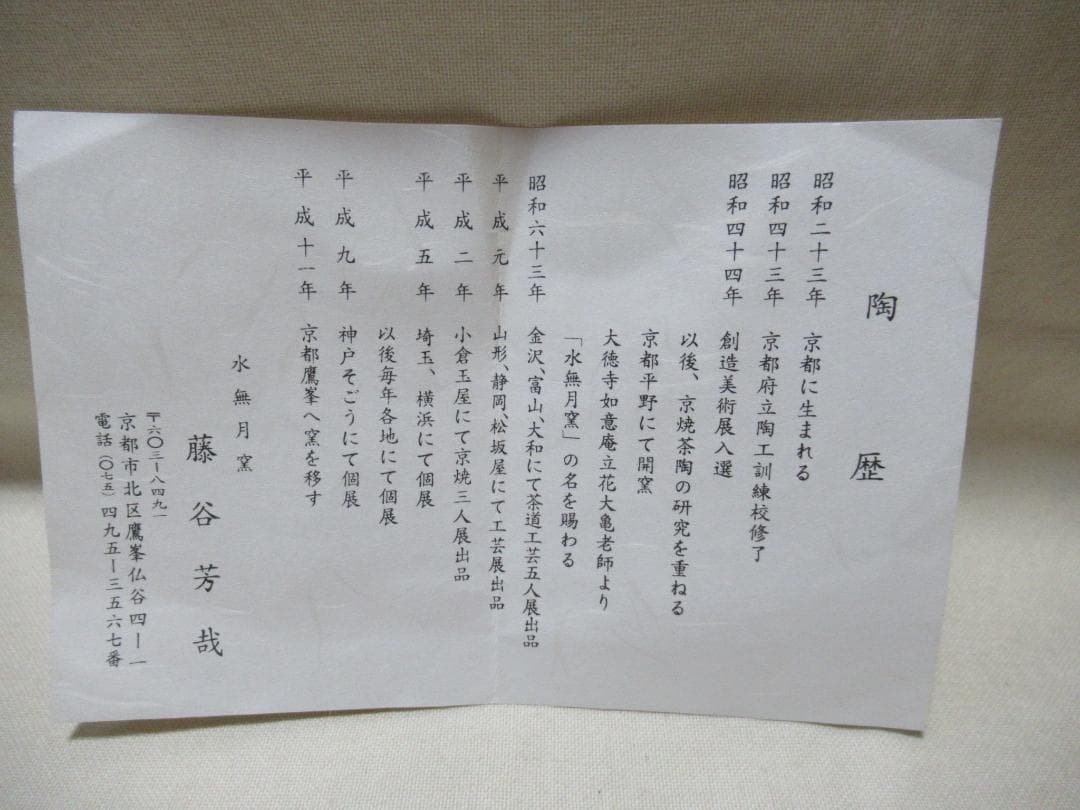 陶歴
昭和二十三年 京都に生まれる
昭和四十三年 京都府立陶工訓練校修了
昭和四十四年 創造美術展入選
以後、京焼茶陶の研究を重ねる
京都平野にて開窯
大徳寺如意庵立花大亀老師より
「水無月窯」の名を賜わる
昭和六十三年 金沢、富山、大和にて茶道工芸五人展出品
平成元年 山形、静岡、松坂屋にて工芸展出品
平成二年 小倉玉屋にて京焼三人展出品
平成五年 埼玉、横浜にて個展
以後毎年各地にて個展
平成九年 神戸そごうにて個展
平成十一年 京都鷹峯へ窯を移す
水無月窯
藤谷芳哉
〒六〇三ー八四九一
京都市北区鷹峯仏谷四ー一
電話(〇七五)四九五ー三五六七番